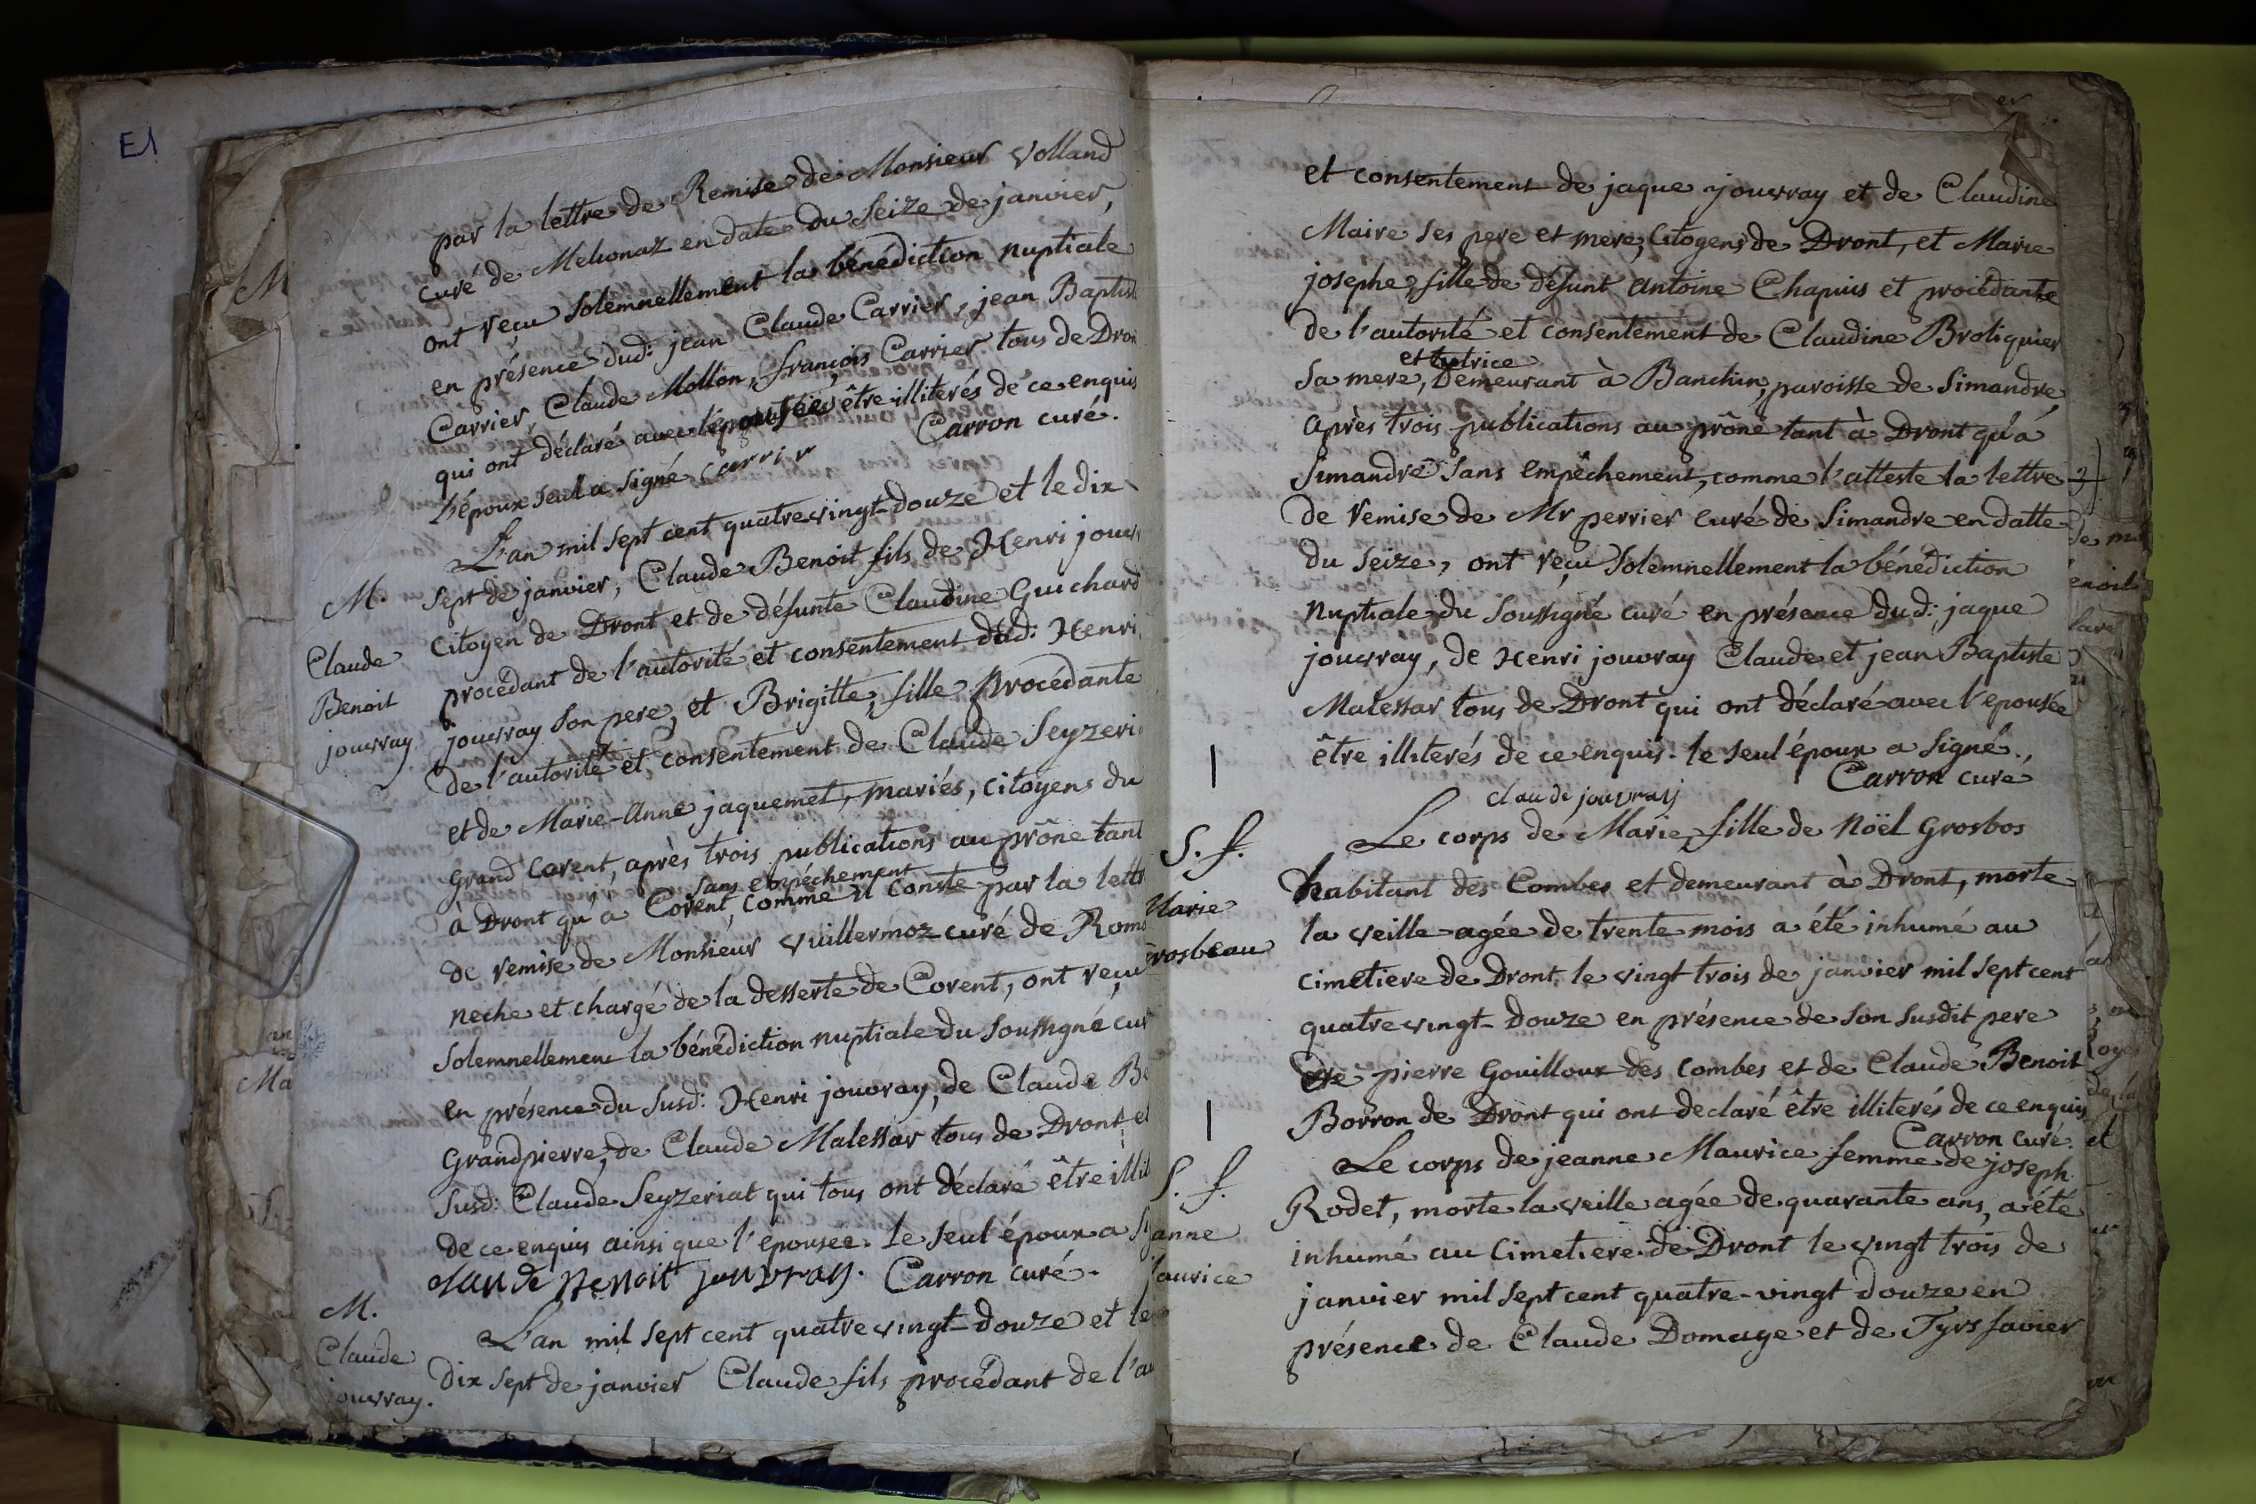 E1
par la lettre de Remise de Monsieur volland
curé de Melionaz en date du seize de janvier,
ont reçu solemnellement la bénédiction nuptiale
en présence dud: jean Claude Carrier, jean Baptist
Carrier, Claude Mollion, françois Carrier tous de Dron
qui ont déclaré avec l'épousée être illiterés de ce enquis
L'époux seul a signé carrier Carron curé.
L'an mil sept cent quatre vingt-douze et le dix
M. sept de janvier, Claude Benoit fils de Henri jouv
Citoyen de Dront et de défunte Claudine Guichard
Claude procédant de l'autorité et consentement dud: Henri
Benoit jouvray son pere, et Brigitte, fille procédante
jouvray de l'autorité et consentement de Claude Seyzeri
et de Marie-Anne jaquemet, mariés, citoyens du
grand Corent, après trois publications au prône tant
sans empéchement
à Dront qu'à Corent, comme il conste par la lett
de remise de Monsieur vuillermoz curé de Rom
neche et chargé de la desserte de Corent, ont reçu
solemnellement la bénédiction nuptiale du soussigné cur
en présence du susd: Henri jouvray, de Claude Be
Grandpierre, de Claude Malessar tous de Dront et
susd: Claude Seyzeriat qui tous ont déclaré être illit
de ce enquis ainsi que l'épousee. Le seul époux a si
claude benoit jouvray. Carron curé.
M.
L'an mil sept cent quatre vingt-douze et le
Claude
dix sept de janvier Claude fils procédant de l'au
jouvray.
et consentement de jaque jouvray et de Claudine
Maire ses pere et mere, Citoyens de Dront, et Marie
josephe, fille de défunt Antoine Chapuis et procédante
de l'autorité et consentement de Claudine Broliquier
et tutrice
sa mere, Demeurant à Banchin, paroisse de Simandre
après trois publications au prône tant à Dront qu'à
Simandre sans empêchement, comme l'atteste la lettre
de remise de Mr perrier curé de Simandre en datte
du seize, ont reçu solemnellement la bénédiction
nuptiale du soussigné curé en présence dud: jaque
jouvray, de Henri jouvray Claude et jean Baptiste
Malessar tous de Dront qui ont déclaré avec l'epousée
être illiterés de ce enquis. le seul époux a signé.
claude jouvray Carron curé
S. f. Le corps de Marie, fille de Nöel Grosbos
habitant des Combes et demeurant à Dront, morte
Marie la veille agée de trente mois a été inhumé au
rosbeau cimetiere de Dront le vingt trois de janvier mil sept cent
quatre vingt-douze en présence de son susdit pere
de pierre Gouilloux des Combes et de Claude Benoit
Borron de Dront qui ont declaré être illiterés de ce enquis
Carron curé.
S. f. Le corps de jeanne Maurice femme de joseph
Rodet, morte la veille agée de quarante ans, a été
anne inhumé au Cimetiere de Dront le vingt trois de
aurice janvier mil sept cent quatre-vingt douze en
présence de Claude Domage et de Tyrs favier